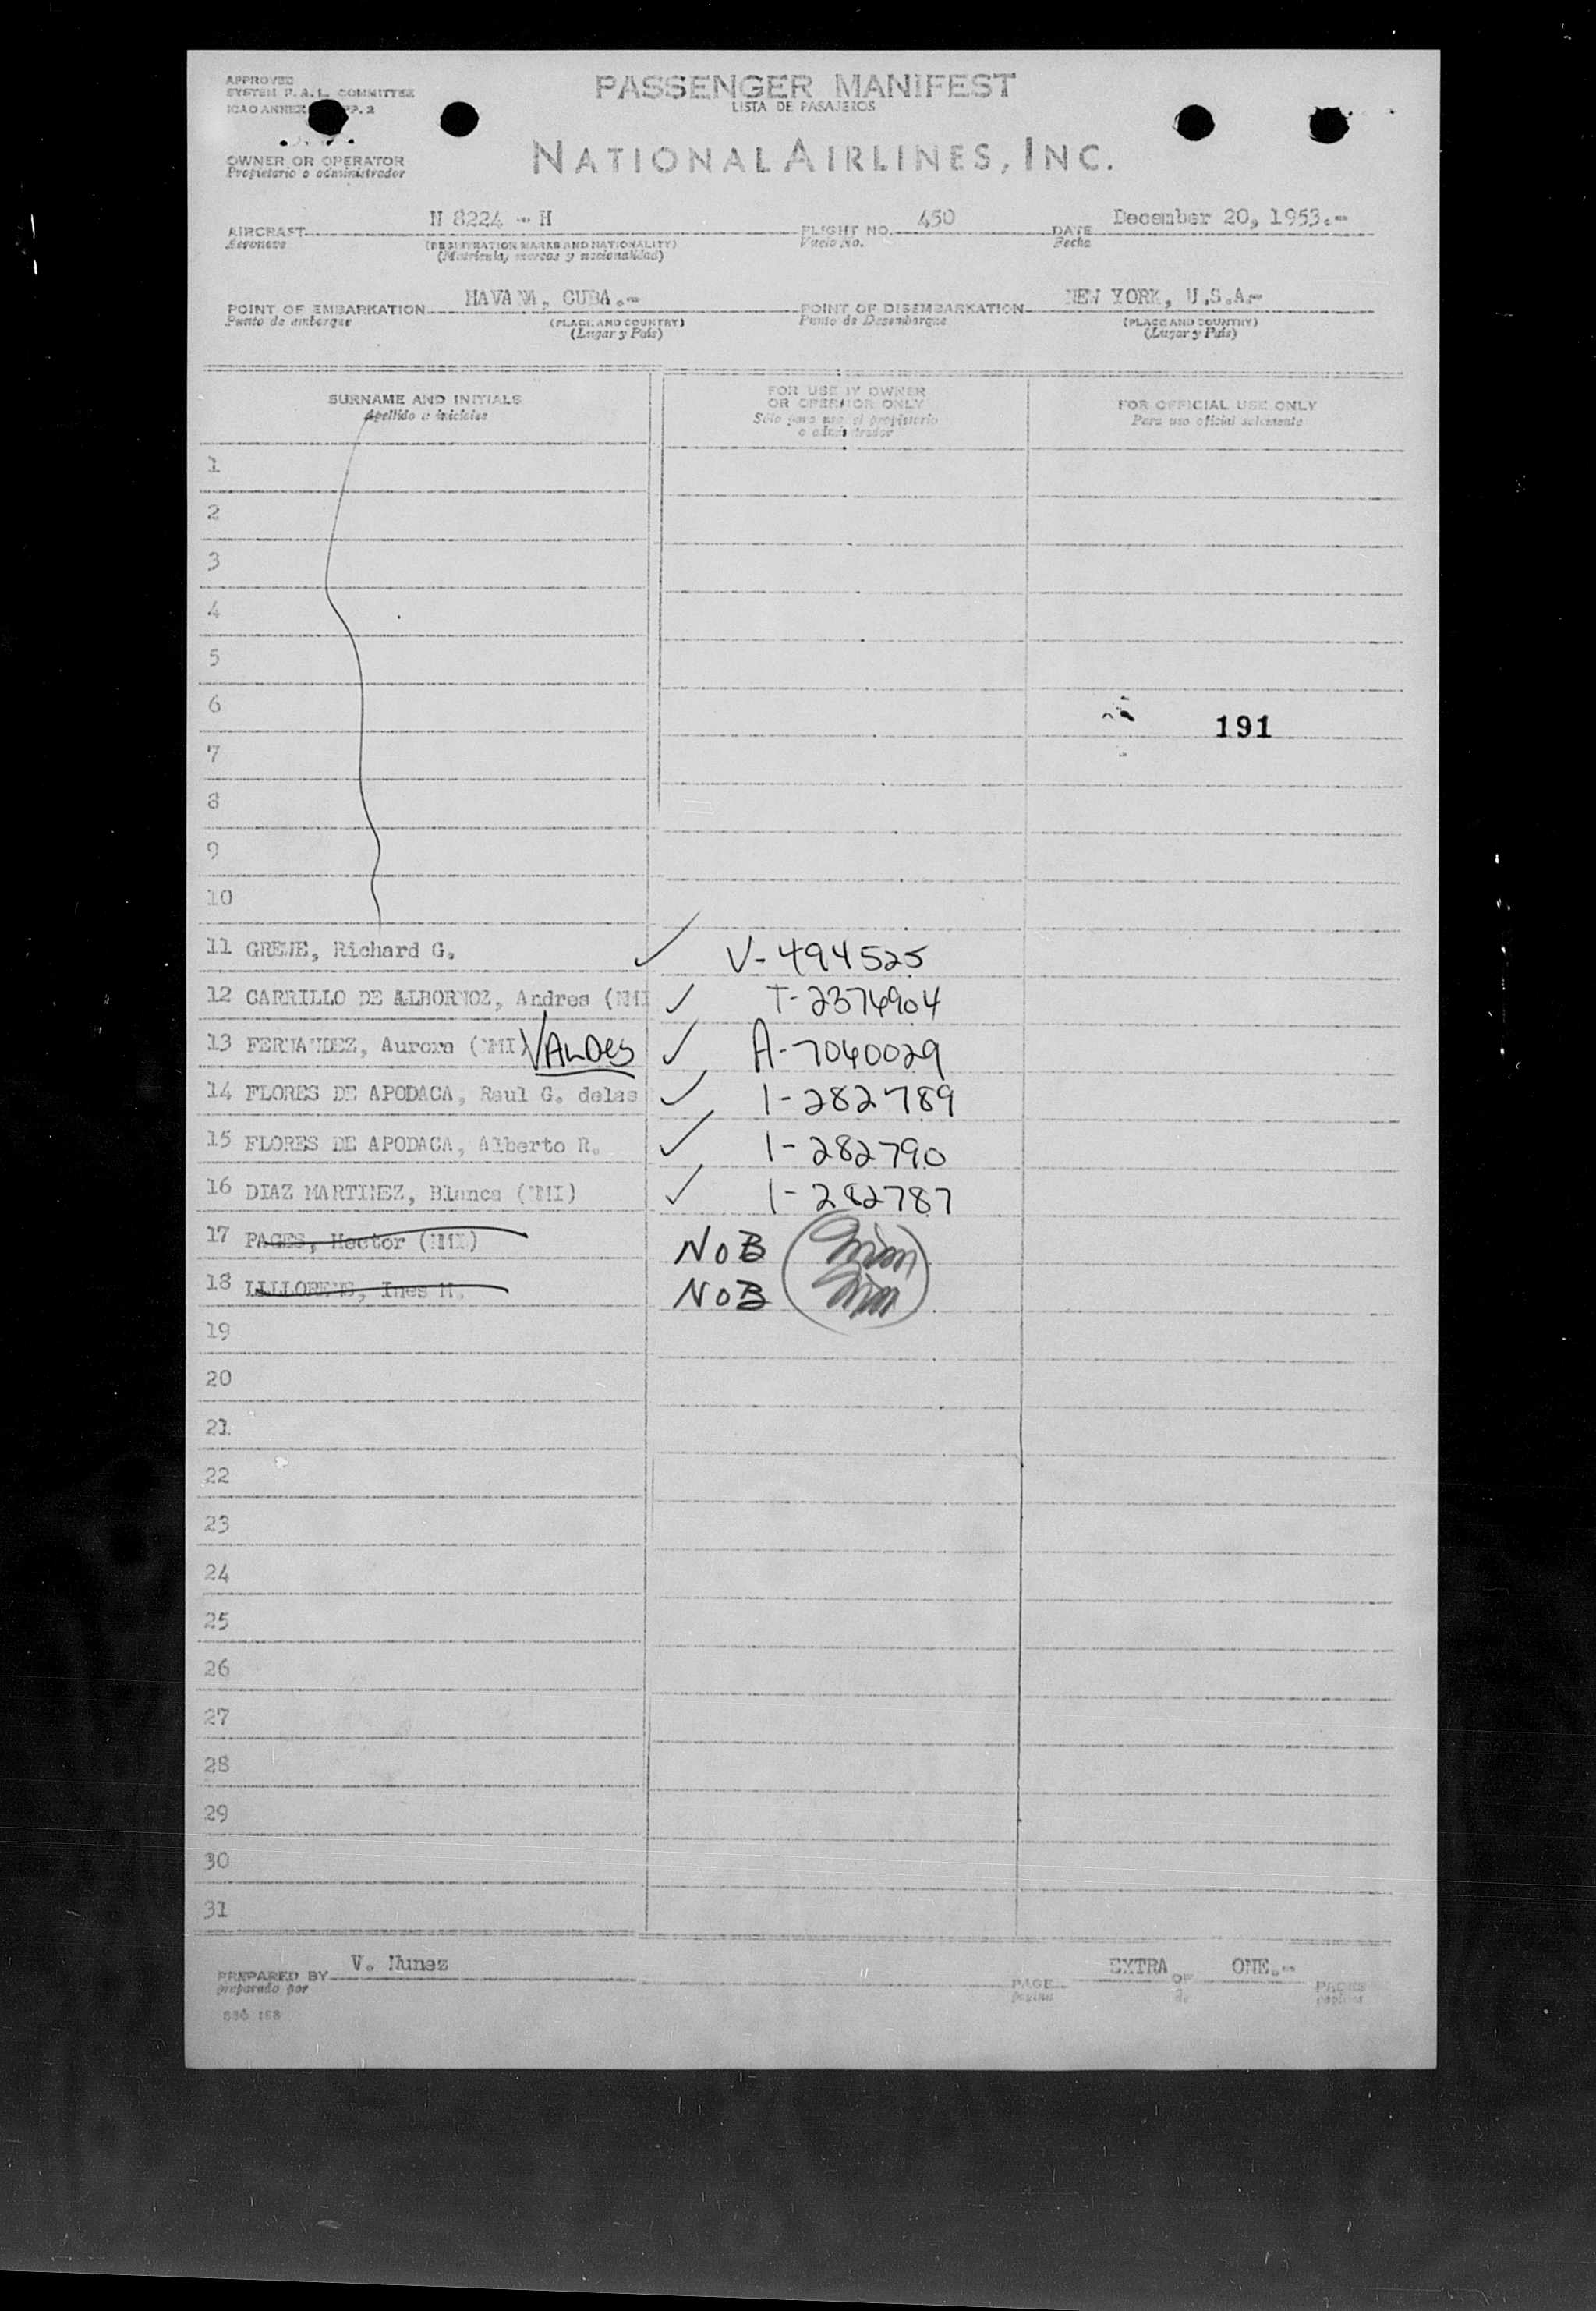 APPROVED
SYSTEM P. A. L. COMMITTEE
ICAO ANNEX P. 2
PASSENGER MANIFEST
LISTA DE PASAJEROS
OWNER OR OPERATOR
Propietario o administrador
NATIONAL AIRLINES, INC.
AIRCRAFT N 8224 - H FLIGHT NO. 450 DATE December 20, 1953.-
Aeronave (REGISTRATION MARKS AND NATIONALITY) Vuelo No. Fecha
(Matricula, marcas y nacionalidad)
POINT OF EMBARKATION HAVANA, CUBA.- POINT OF DISEMBARKATION NEW YORK, U.S.A.-
Punto de embarque (PLACE AND COUNTRY) Punto de Desembarque (PLACE AND COUNTRY)
(Lugar y País) (Lugar y País)
SURNAME AND INITIALS FOR USE BY OWNER OR OPERATOR ONLY FOR OFFICIAL USE ONLY
Apellido e iniciales Sólo para uso el propietario o administrador Para uso oficial solamente
1
2
3
4
5
6
191
7
8
9
10
11 GREWE, Richard G. ✓ V-494525
12 CARRILLO DE ALBORNOZ, Andres (NMI ✓ T-2374904
13 FERNANDEZ, Aurora (NMI) VALDES ✓ A-7040029
14 FLORES DE APODACA, Raul G. delas ✓ 1-282789
15 FLORES DE APODACA, Alberto R. ✓ 1-282790
16 DIAZ MARTINEZ, Blanca (NMI) ✓ 1-282787
17 PAGES, Hector (NMI) NOB
18 LLLLORENS, Ines M. NOB
19
20
21
22
23
24
25
26
27
28
29
30
31
PREPARED BY V. Nunez PAGE EXTRA OF ONE.- PAGES
preparado por pagina de paginas